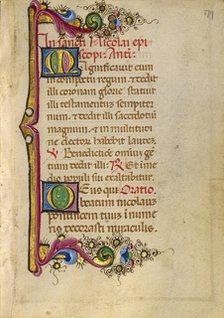 In sancti Nicolai epi
scopi. Anti.
Magnificavit eum
in conspectu regum et dedit
illi coronam glorie statuit
illi testamentum sempiter
num et dedit illi sacerdotium
magnum et in multitudi
ne electorum habebit laudes
V Benedictionem omnium gen
tium dedit illi. R Et in me
dio populi sui exaltabit.
Deus qui Oratio.
beatum nicolaum
pontificem tuum innume
ris decorasti miraculis.